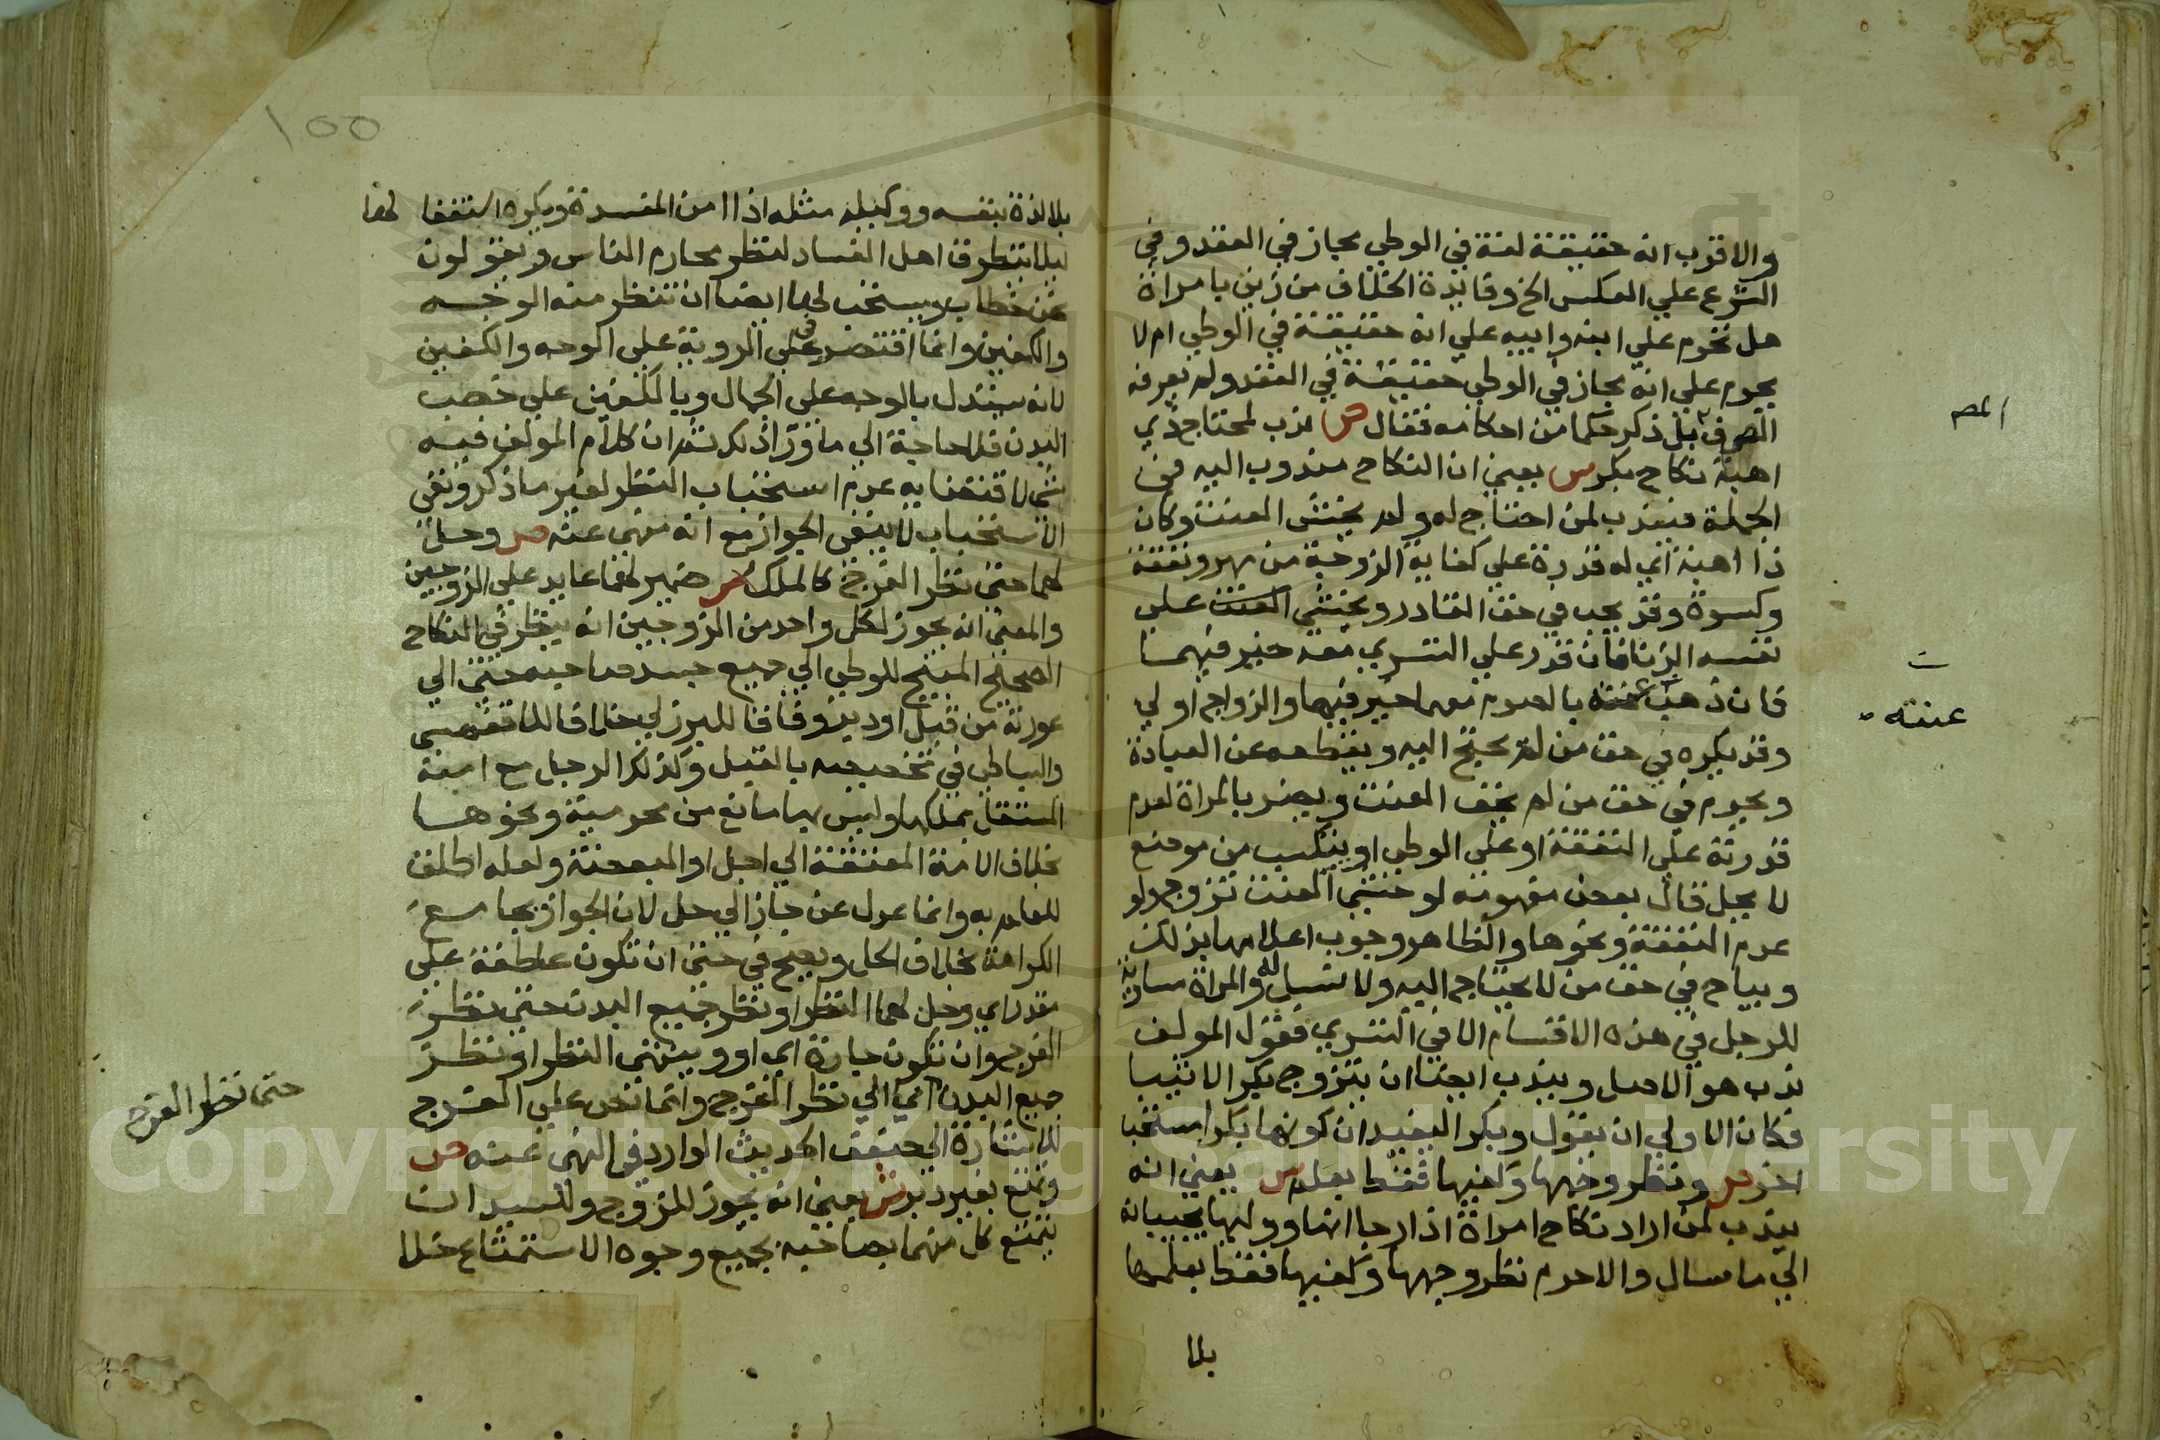 والاقرب انه حقيقة لغة في الوطي مجاز في العقد وفي
الشرع علي العكس الخ وفايدة الخلاف من زني بامراة
هل تحرم علي ابنه وابيه علي انه حقيقة في الوطي ام لا
يحرم علي انه مجاز في الوطي حقيقة في العقد ولم يعرفه
المص بل ذكر حكما من احكامه فقال ص ندب لمحتاج ذي
اهبة نكاح بكر س يعني ان النكاح مندوب اليه في
الجملة فيندب لمن احتاج له ولم يخش العنت وكان
ذا اهبة اي له قدرة علي كفاية الزوجة من مهر ونفقة
وكسوة وقد يجب في حق القادر ويخشي العنت علي
نفسه الزنا فان قدر علي التسري معه خير فيهما
فان ذهب عنته بالصوم معهما خير فيها والزواج اولي
وقد يكره في حق من لم يحتج اليه ويقطعه عن العبادة
ويحرم في حق من لم يخف العنت ويضر بالمراة لعدم
قدرته علي النفقة او علي الوطي او يتكسب من موضع
لا يحل قال بعض مفهومه لو خشي العنت تزوج ولو
عدم النفقة ونحوها والظاهر وجوب اعلامها بذلك
ويباح في حق من لا يحتاج اليه ولا نسل له والمراة مساوية
للرجل في هذه الاقسام الا في التسري فقول المولف
ندب هو الاصل ويندب ايضا ان يتزوج بكرا لا ثيبا
فكان الاولي ان يقول وبكر ليفيد ان كونها بكرا مستحبا
اخر ص ونظر وجهها وكفيها فقط بعلم س يعني انه
يندب لمن اراد نكاح امراة اذا رجا انها ووليها يجيبانه
الي ما سال والا حرم نظر وجهها وكفيها فقط بعلمها
بلا
المص
ت
عنته
١٥٥
بلا لذة بنفسه ووكيله مثله اذا امن المفسدة ويكره استغفا لها
ليلا يتطرق اهل الفساد لنظر محارم الناس ويقولون
نحن خطاب ويستحب لها ايضا ان تنظر منه الوجه
والكفين وانما اقتصر في الروية علي الوجه والكفين
لانه يستدل بالوجه علي الجمال وبالكفين علي خصب
البدن فلا حاجة الي ما فوق ذلك ثم ان كلام المولف فيه
شي لاقتضايه عدم استحباب النظر لغير ما ذكر ونفي
الاستحباب لا ينفي الجواز مع انه منهي عنه ص وحل
لهما حتي نظر الفرج كالملك س ضمير لهما عايد علي الزوجين
والمعني انه يجوز لكل واحد من الزوجين انه ينظر في النكاح
الصحيح المبيح للوطي الي جميع جسد صاحبه حتي الي
عورته من قبل او دبر وفاقا للبرزلي خلافا للاقفهسي
والبساطي في تخصيصه بالقبل وكذلك الرجل مع امته
المستقل بملكها وليس بها مانع من محرمية ونحوها
بخلاف الامة المعتقة الي اجل او المبعضة ولعله اطلق
للعلم به وانما عدل عن جاز الي حل لان الجواز يجامع
الكراهة بخلاف الحل ويصح في حتي ان تكون عاطفة علي
مقدر اي وحل لهما النظر او نظر جميع البدن حتي نظر
الفرج وان تكون جارة اي او وينتهي النظر او نظر
جميع البدن اي الي نظر الفرج وانما نص علي الفرج
للاشارة الي ضعف الحديث الوارد في النهي عنه ص
وتمتع بغير دبر ش يعني انه يجوز للزوج وللسيد ان
يتمتع كل منهما بصاحبه بجميع وجوه الاستمتاع خلا
حتي نظر الفرج
Copyright © King Saud University